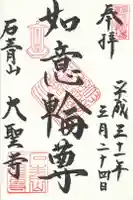 奉拝
平成三十一年
三月二十四日
如意輪尊
石青山
大聖寺